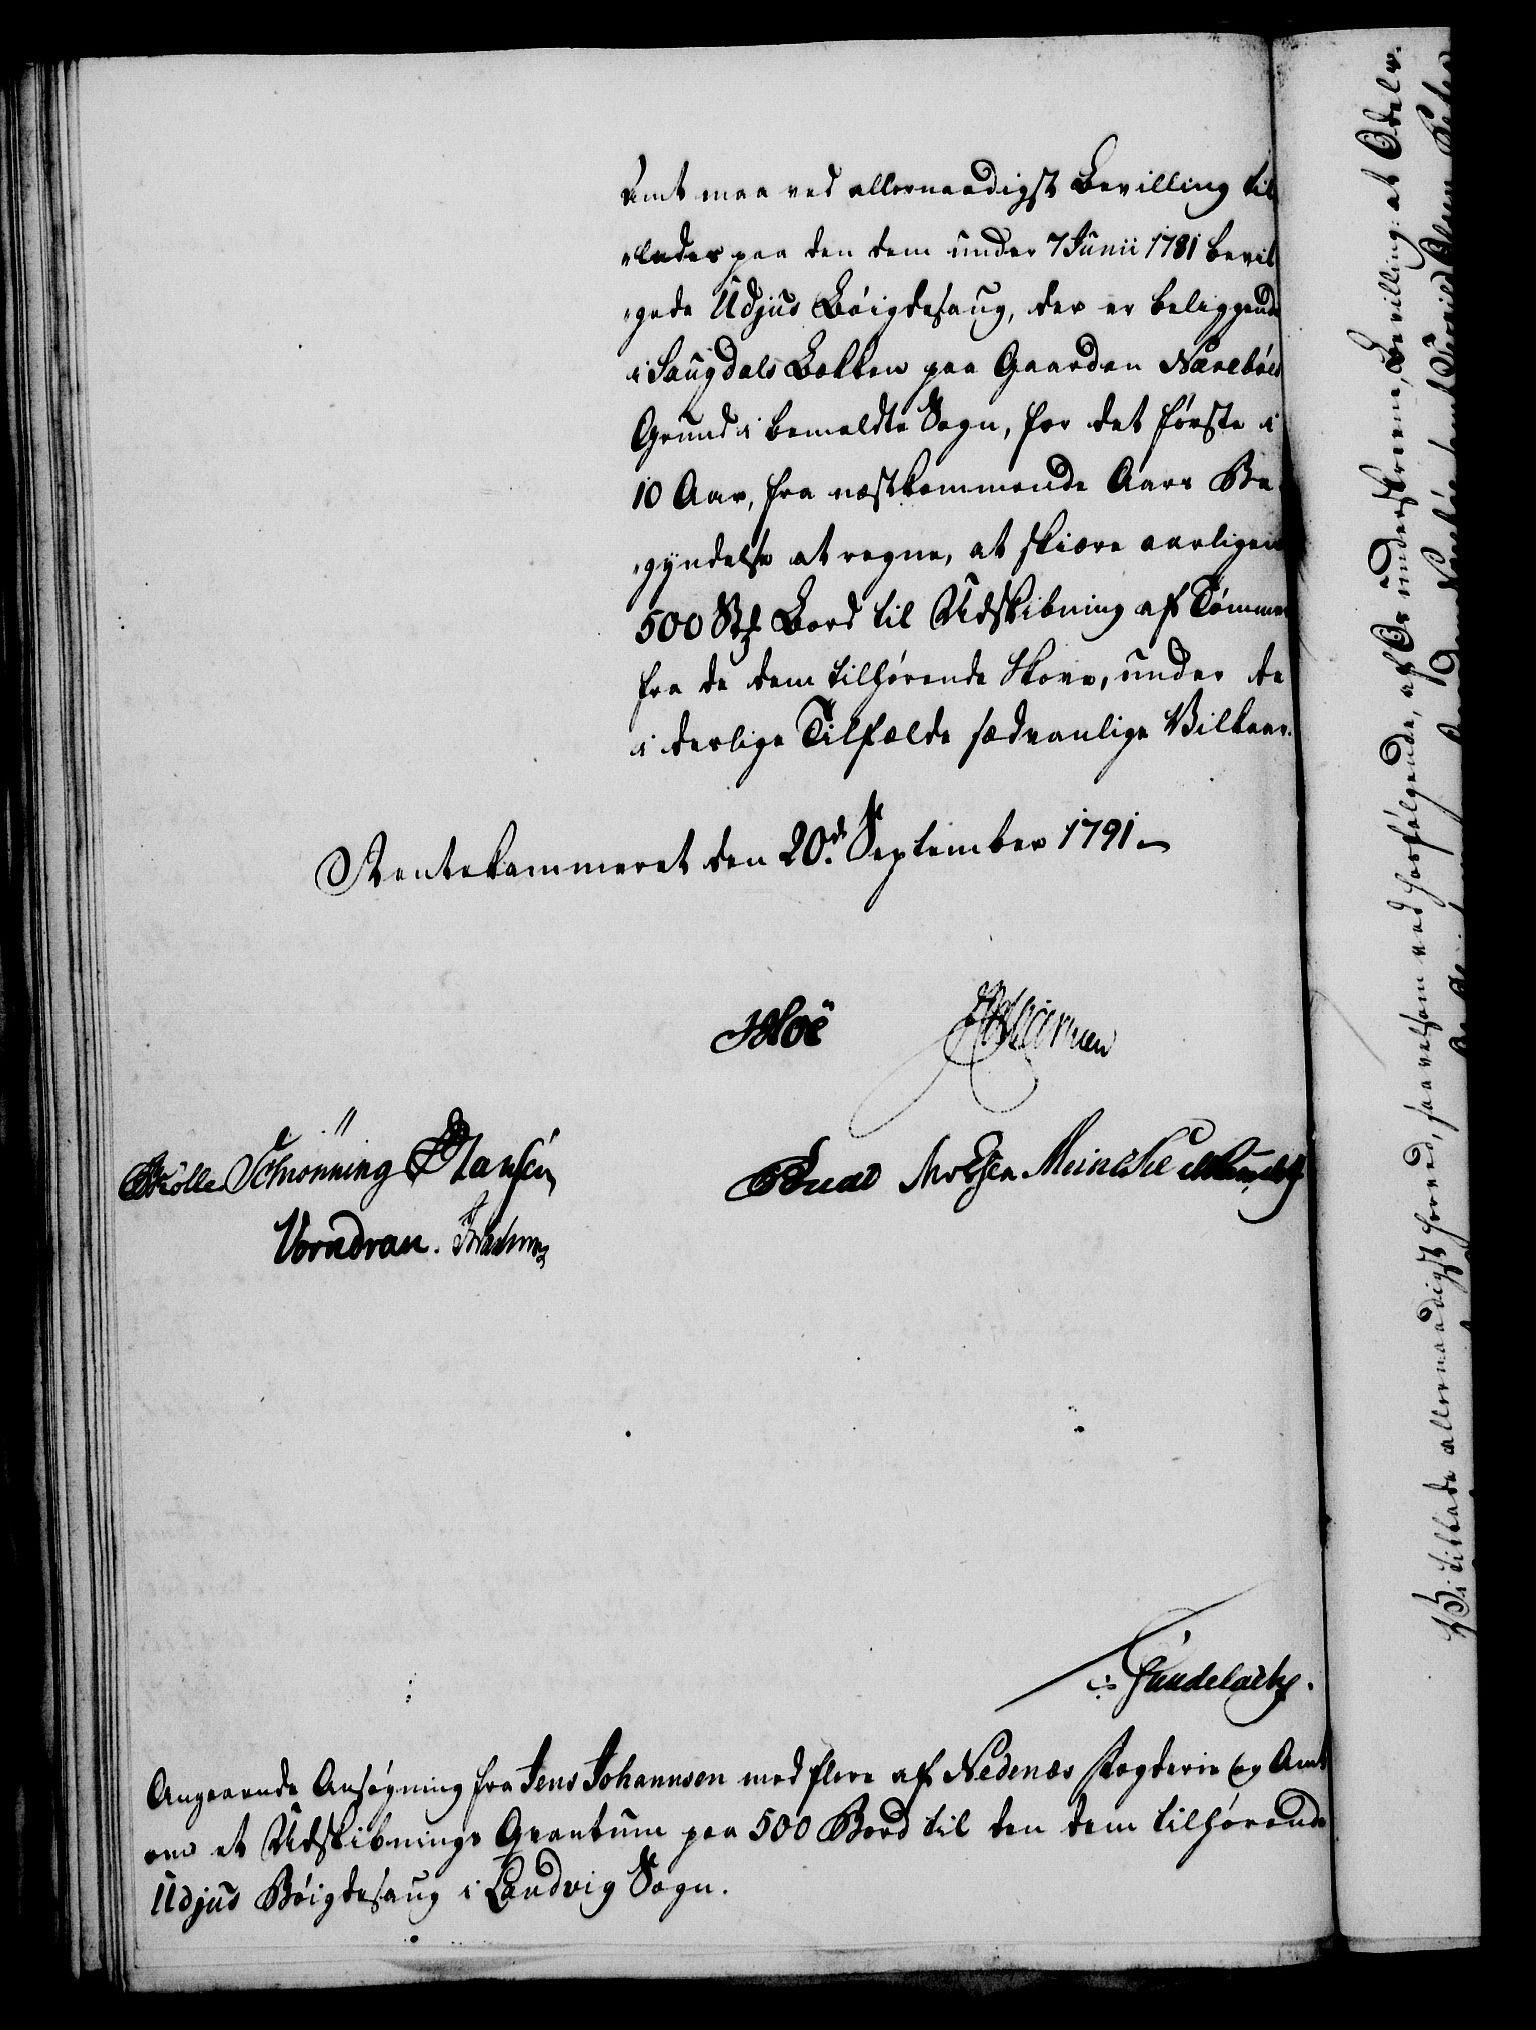 Amt maa ved allernaadigst Bevilling til
„lades paa den dem under 7 Junii 1781 bevil
„gede Udjus Böigdesaug, der er beliggende
i Saugdals Bekken paa Gaarden Næreböes
Grund i bemeldte Sogn, for det förste i
10 Aar, fra næstkommende Aars Be
„gyndelse at regne, at skiære aarligen
500 Stk Bord til Udskibning af Tömmer
fra de dem tilhörende Skove, under de
i deslige Tilfælde sædvanlige Vilkaar.
Rentekammeret den 20de September 1791.
Hoë
Schrönning Hansen
Meincke
Vorndran.
Gundelach.
Angaaende Ansögning fra Jens Johannsen med flere af Nedenæs Fogderie og Amt
om et Udskibnings Qvantum paa 500 Bord til den dem tilhörende
Udjus Böigdesaug i Landvig Sogn.
Vi tillade allernaadigst hermed, saavelsom ved hosfölgende, af Os underskrevne, Bevilling: at Odel v.